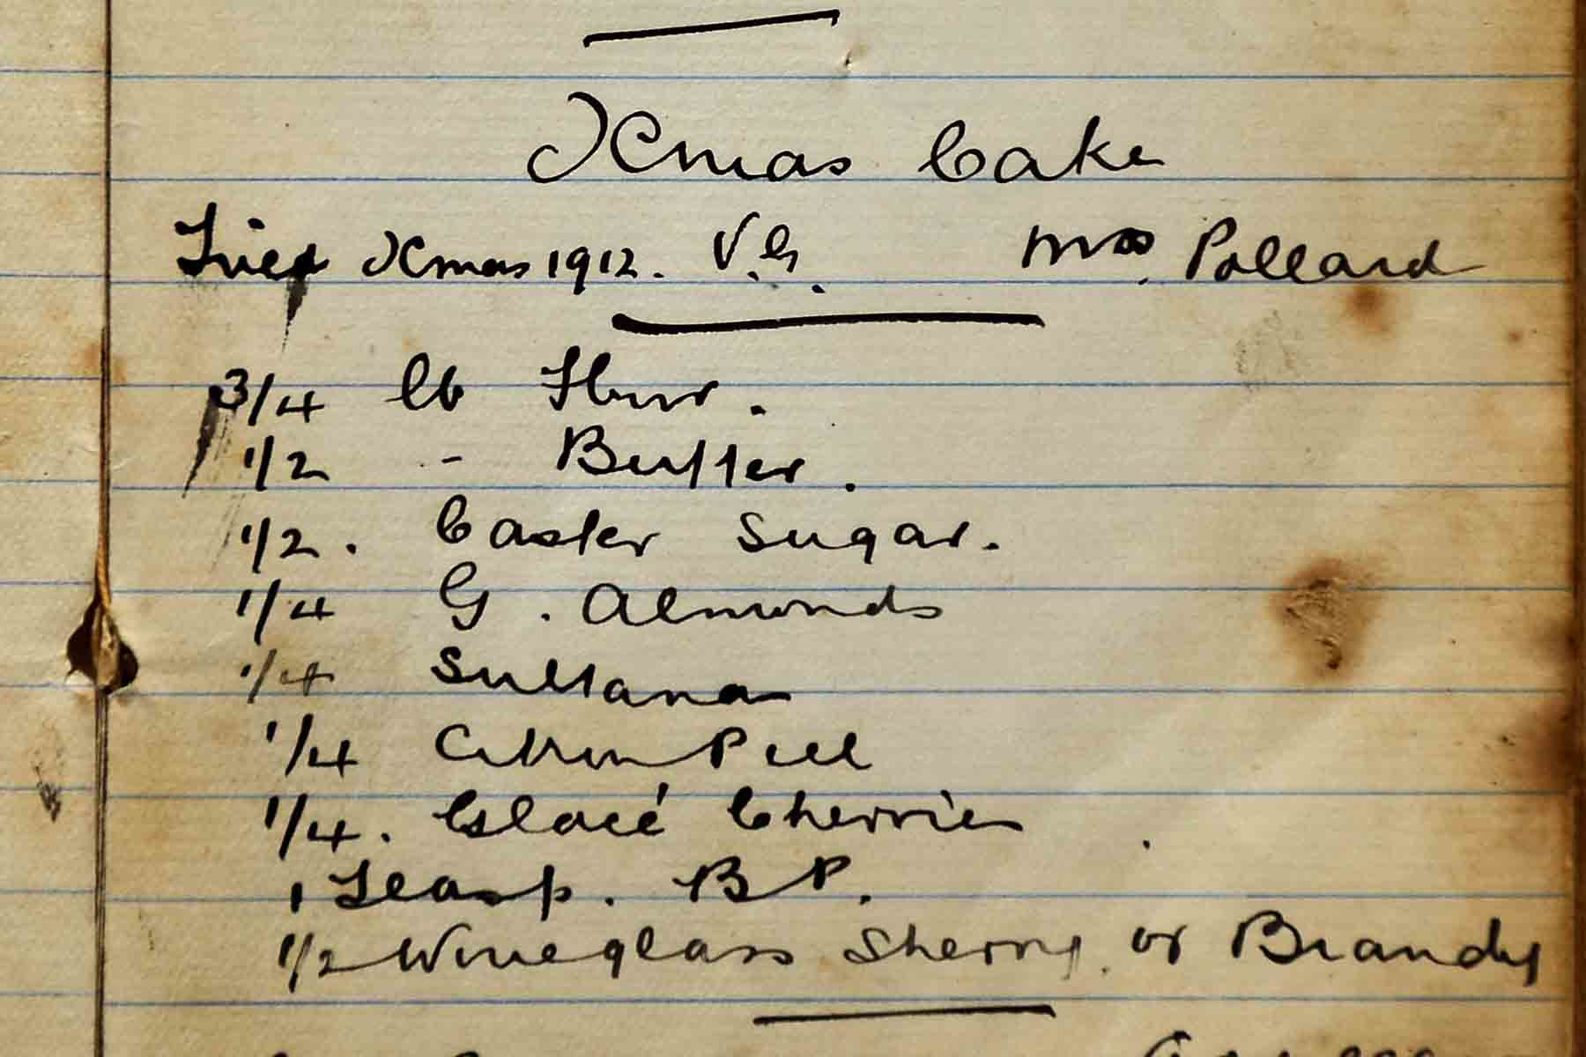 Xmas Cake
Tried Xmas 1912. V.G. Mrs Pollard
3/4 lb Flour.
1/2 - Butter.
1/2. Caster Sugar.
1/4 G. Almonds
1/4 Sultana
1/4 Citron Peel
1/4. Glacé Cherries
1 Teasp. B P.
1/2 Wineglass Sherry or Brandy